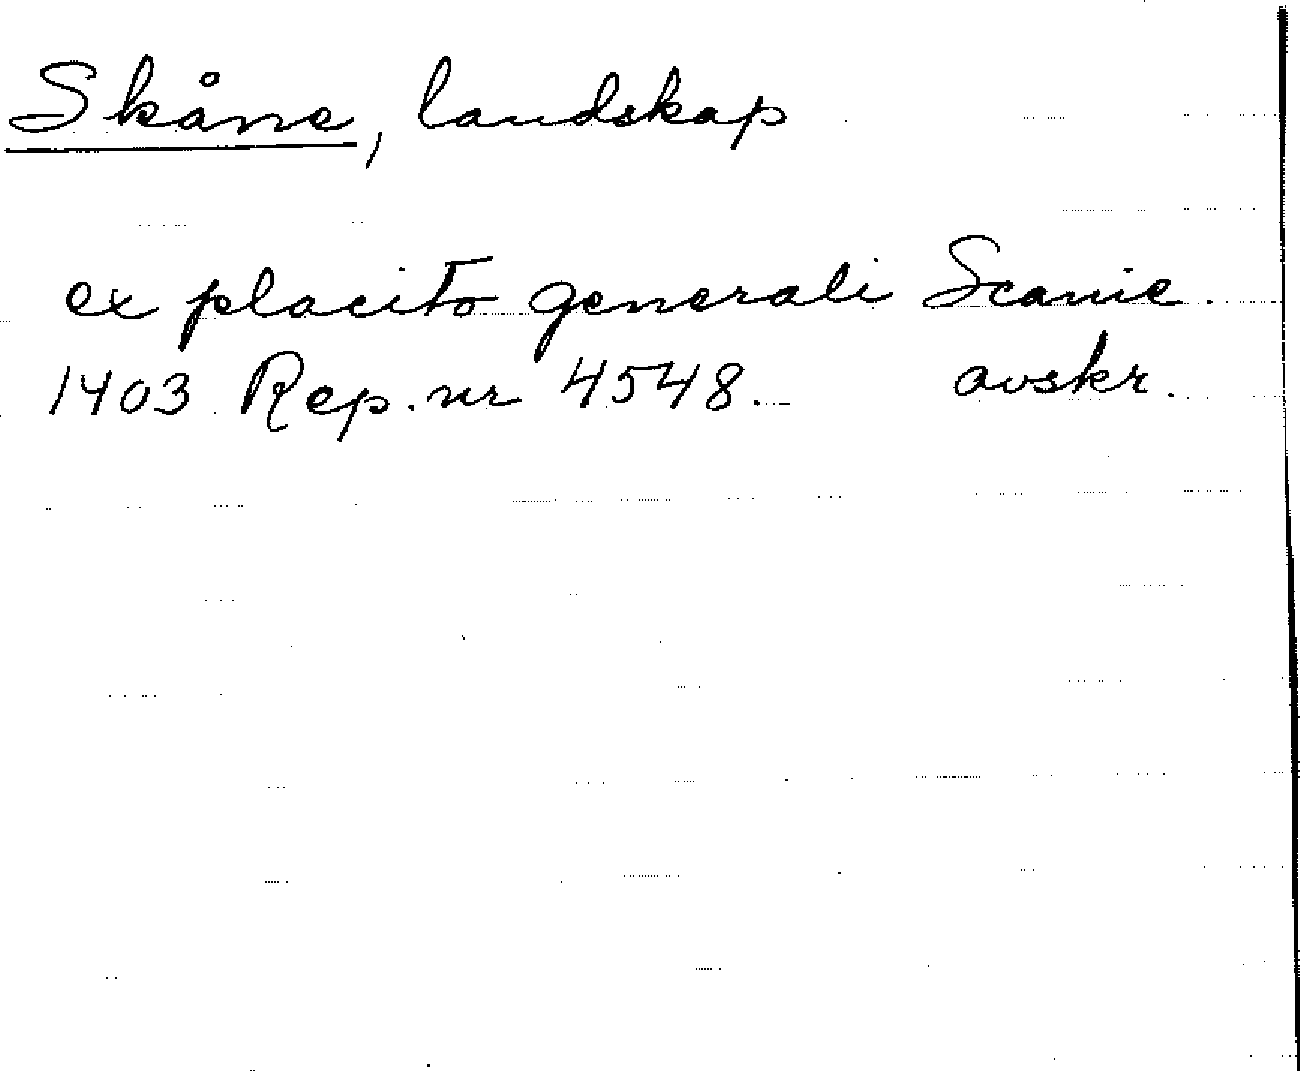 Skåne, landskap
ex placito generali Scanie.
1403 Rep. nr 4548. avskr.